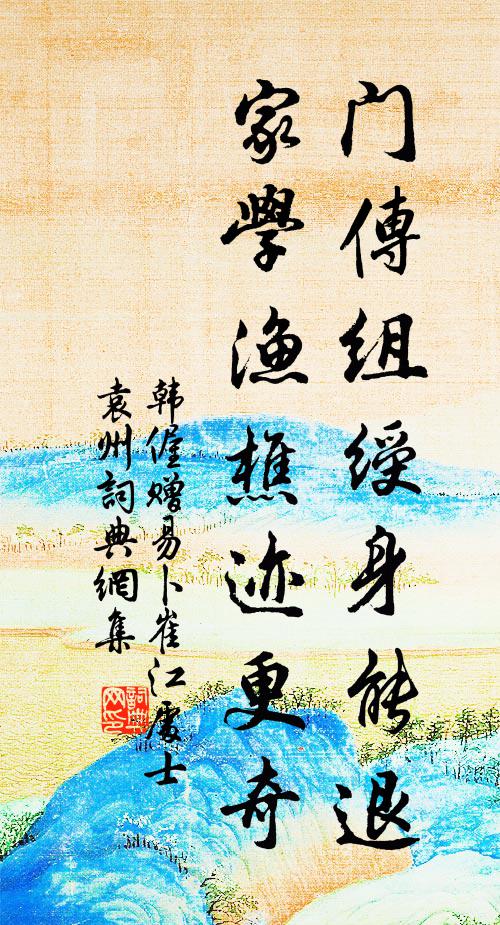 門傳組綬身能退
家學漁樵迹更奇
韓偓贈易卜崔江處士
袁州詞典網集